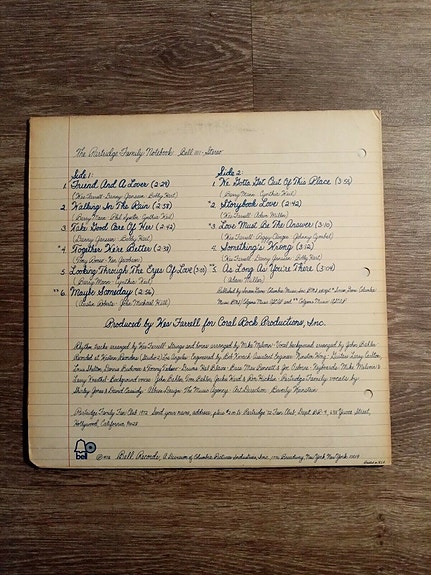 The Partridge Family Notebook Bell 1111 - Stereo
Side 1:
1. Friend And A Lover (2:29)
(Wes Farrell - Danny Janssen - Bobby Hart)
2. Walking In The Rain (2:58)
(Barry Mann - Phil Spector - Cynthia Weil)
3. Take Good Care Of Her (2:42)
(Danny Janssen - Bobby Hart)
*4. Together We're Better (2:38)
(Tony Romeo - Ken Jacobson)
5. Looking Through The Eyes Of Love (3:03)
(Barry Mann - Cynthia Weil)
**6. Maybe Someday (2:56)
(Austin Roberts - John Michael Hill)
Side 2:
1. We Gotta Get Out Of This Place (3:56)
(Barry Mann - Cynthia Weil)
*2. Storybook Love (2:42)
(Wes Farrell - Adam Miller)
*3. Love Must Be The Answer (3:10)
(Wes Farrell - Peggy Clinger - Johnny Cymbal)
4. Something's Wrong (3:12)
(Wes Farrell - Danny Janssen - Bobby Hart)
*5. As Long As You're There (3:04)
(Adam Miller)
Produced by Wes Farrell for Coral Rock Productions, Inc.
Rhythm tracks arranged by Wes Farrell - Strings and horns arranged by Mike Melvoin - Vocal background arranged by John Bahler
Recorded at Western Recorders (Studio 2) Los Angeles - Engineered by Bob Kovach - Assistant Engineer: Winston Wong - Guitars: Larry Carlton,
Louie Shelton, Dennis Budimir & Tommy Tedesco - Drums: Hal Blaine - Bass: Max Bennett & Joe Osborn - Keyboards: Mike Melvoin &
Larry Knechtel - Background voices: John Bahler, Tom Bahler, Jackie Ward & Ron Hicklin - Partridge Family vocals by
Shirley Jones & David Cassidy - Album Design: The Music Agency - Art Direction: Beverly Weinstein
Hollywood, California 90028
bell
Bell Records, A Division of Columbia Pictures Industries, Inc., 1776 Broadway, New York, New York 10019